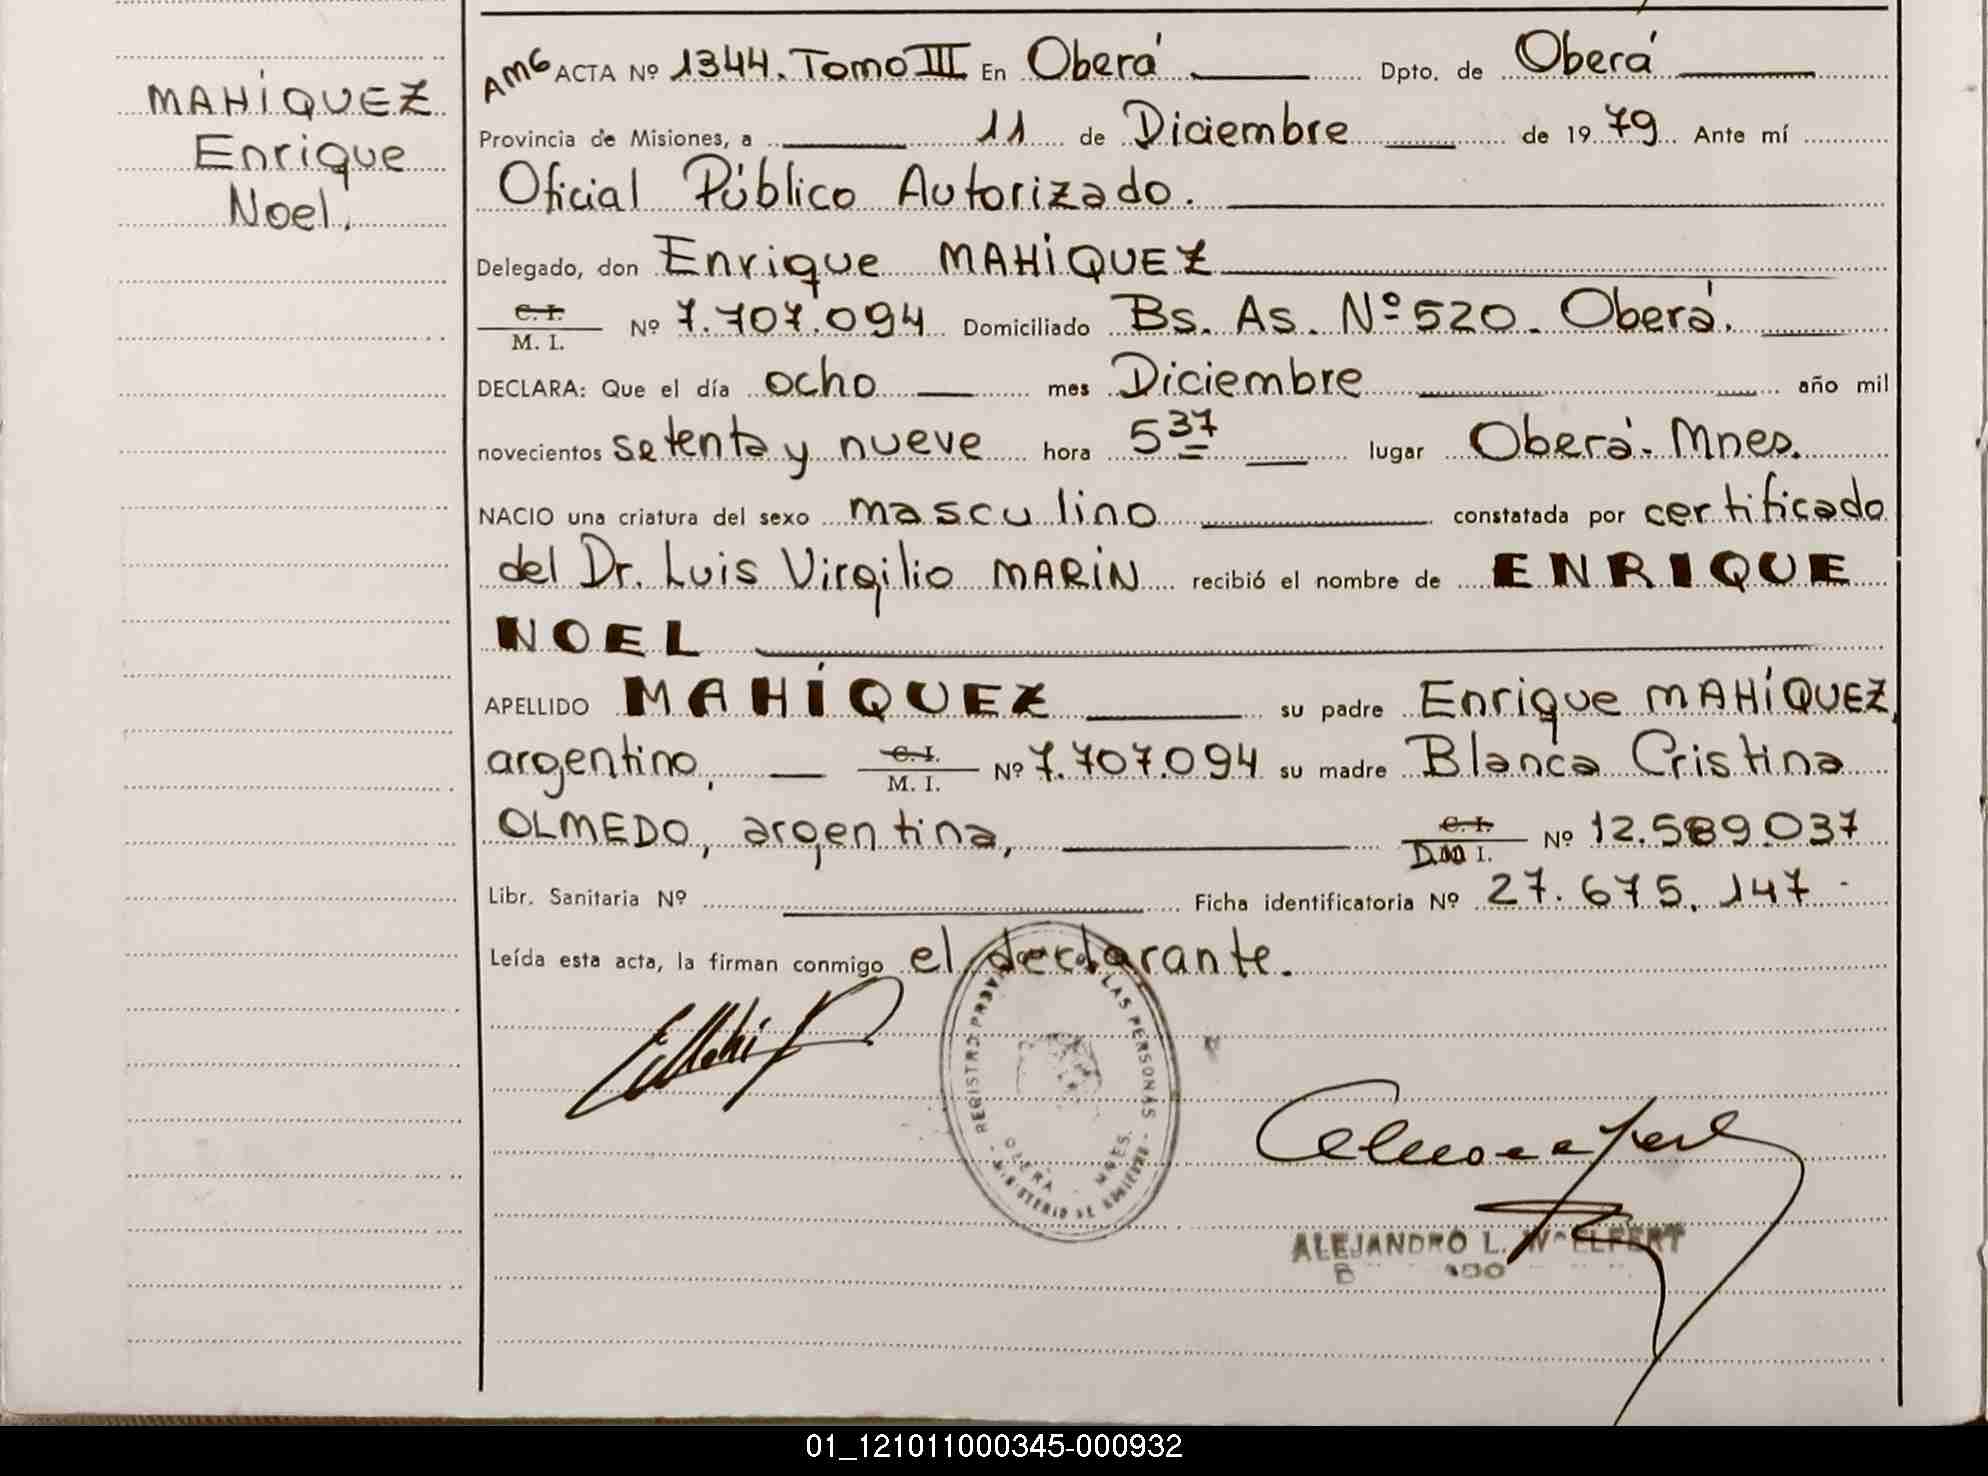 MAHÍQUEZ
Enrique
Noel.
AMG ACTA Nº 1344. Tomo III En Oberá Dpto. de Oberá
Provincia de Misiones, a 11 de Diciembre de 1979 Ante mí
Oficial Público Autorizado.
Delegado, don Enrique MAHÍQUEZ
C. I.
M. I. Nº 7.707.094 Domiciliado Bs. As. Nº 520. Oberá.
DECLARA: Que el día ocho mes Diciembre año mil
novecientos setenta y nueve hora 5 37 lugar Oberá. Mnes.
NACIO una criatura del sexo masculino constatada por certificado
del Dr. Luis Virgilio MARÍN recibió el nombre de ENRIQUE
NOEL
APELLIDO MAHÍQUEZ su padre Enrique MAHÍQUEZ,
argentino, C. I.
M. I. Nº 7.707.094 su madre Blanca Cristina
OLMEDO, argentina, C. I.
I. Nº 12.589.037
Libr. Sanitaria Nº Ficha identificatoria Nº 27.675.147-
Leída esta acta, la firman conmigo el declarante.
REGISTRO LAS PERSONAS
OBERA - MNES.
MINISTERIO DE GOBIERNO
ALEJANDRO L. WOELFERT
01_121011000345-000932